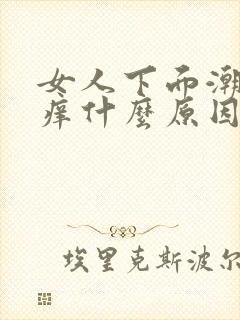 女人下而潮
痒什麼原因
埃里克斯波尔